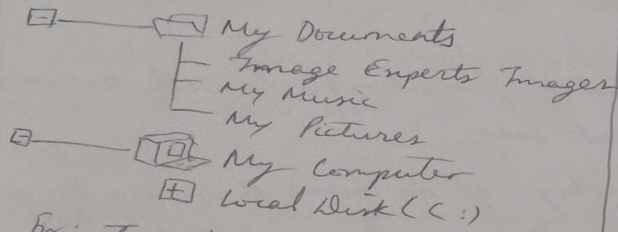 My Documents
Image Experts Images
My Music
My Pictures
My Computer
Local Disk (C:)